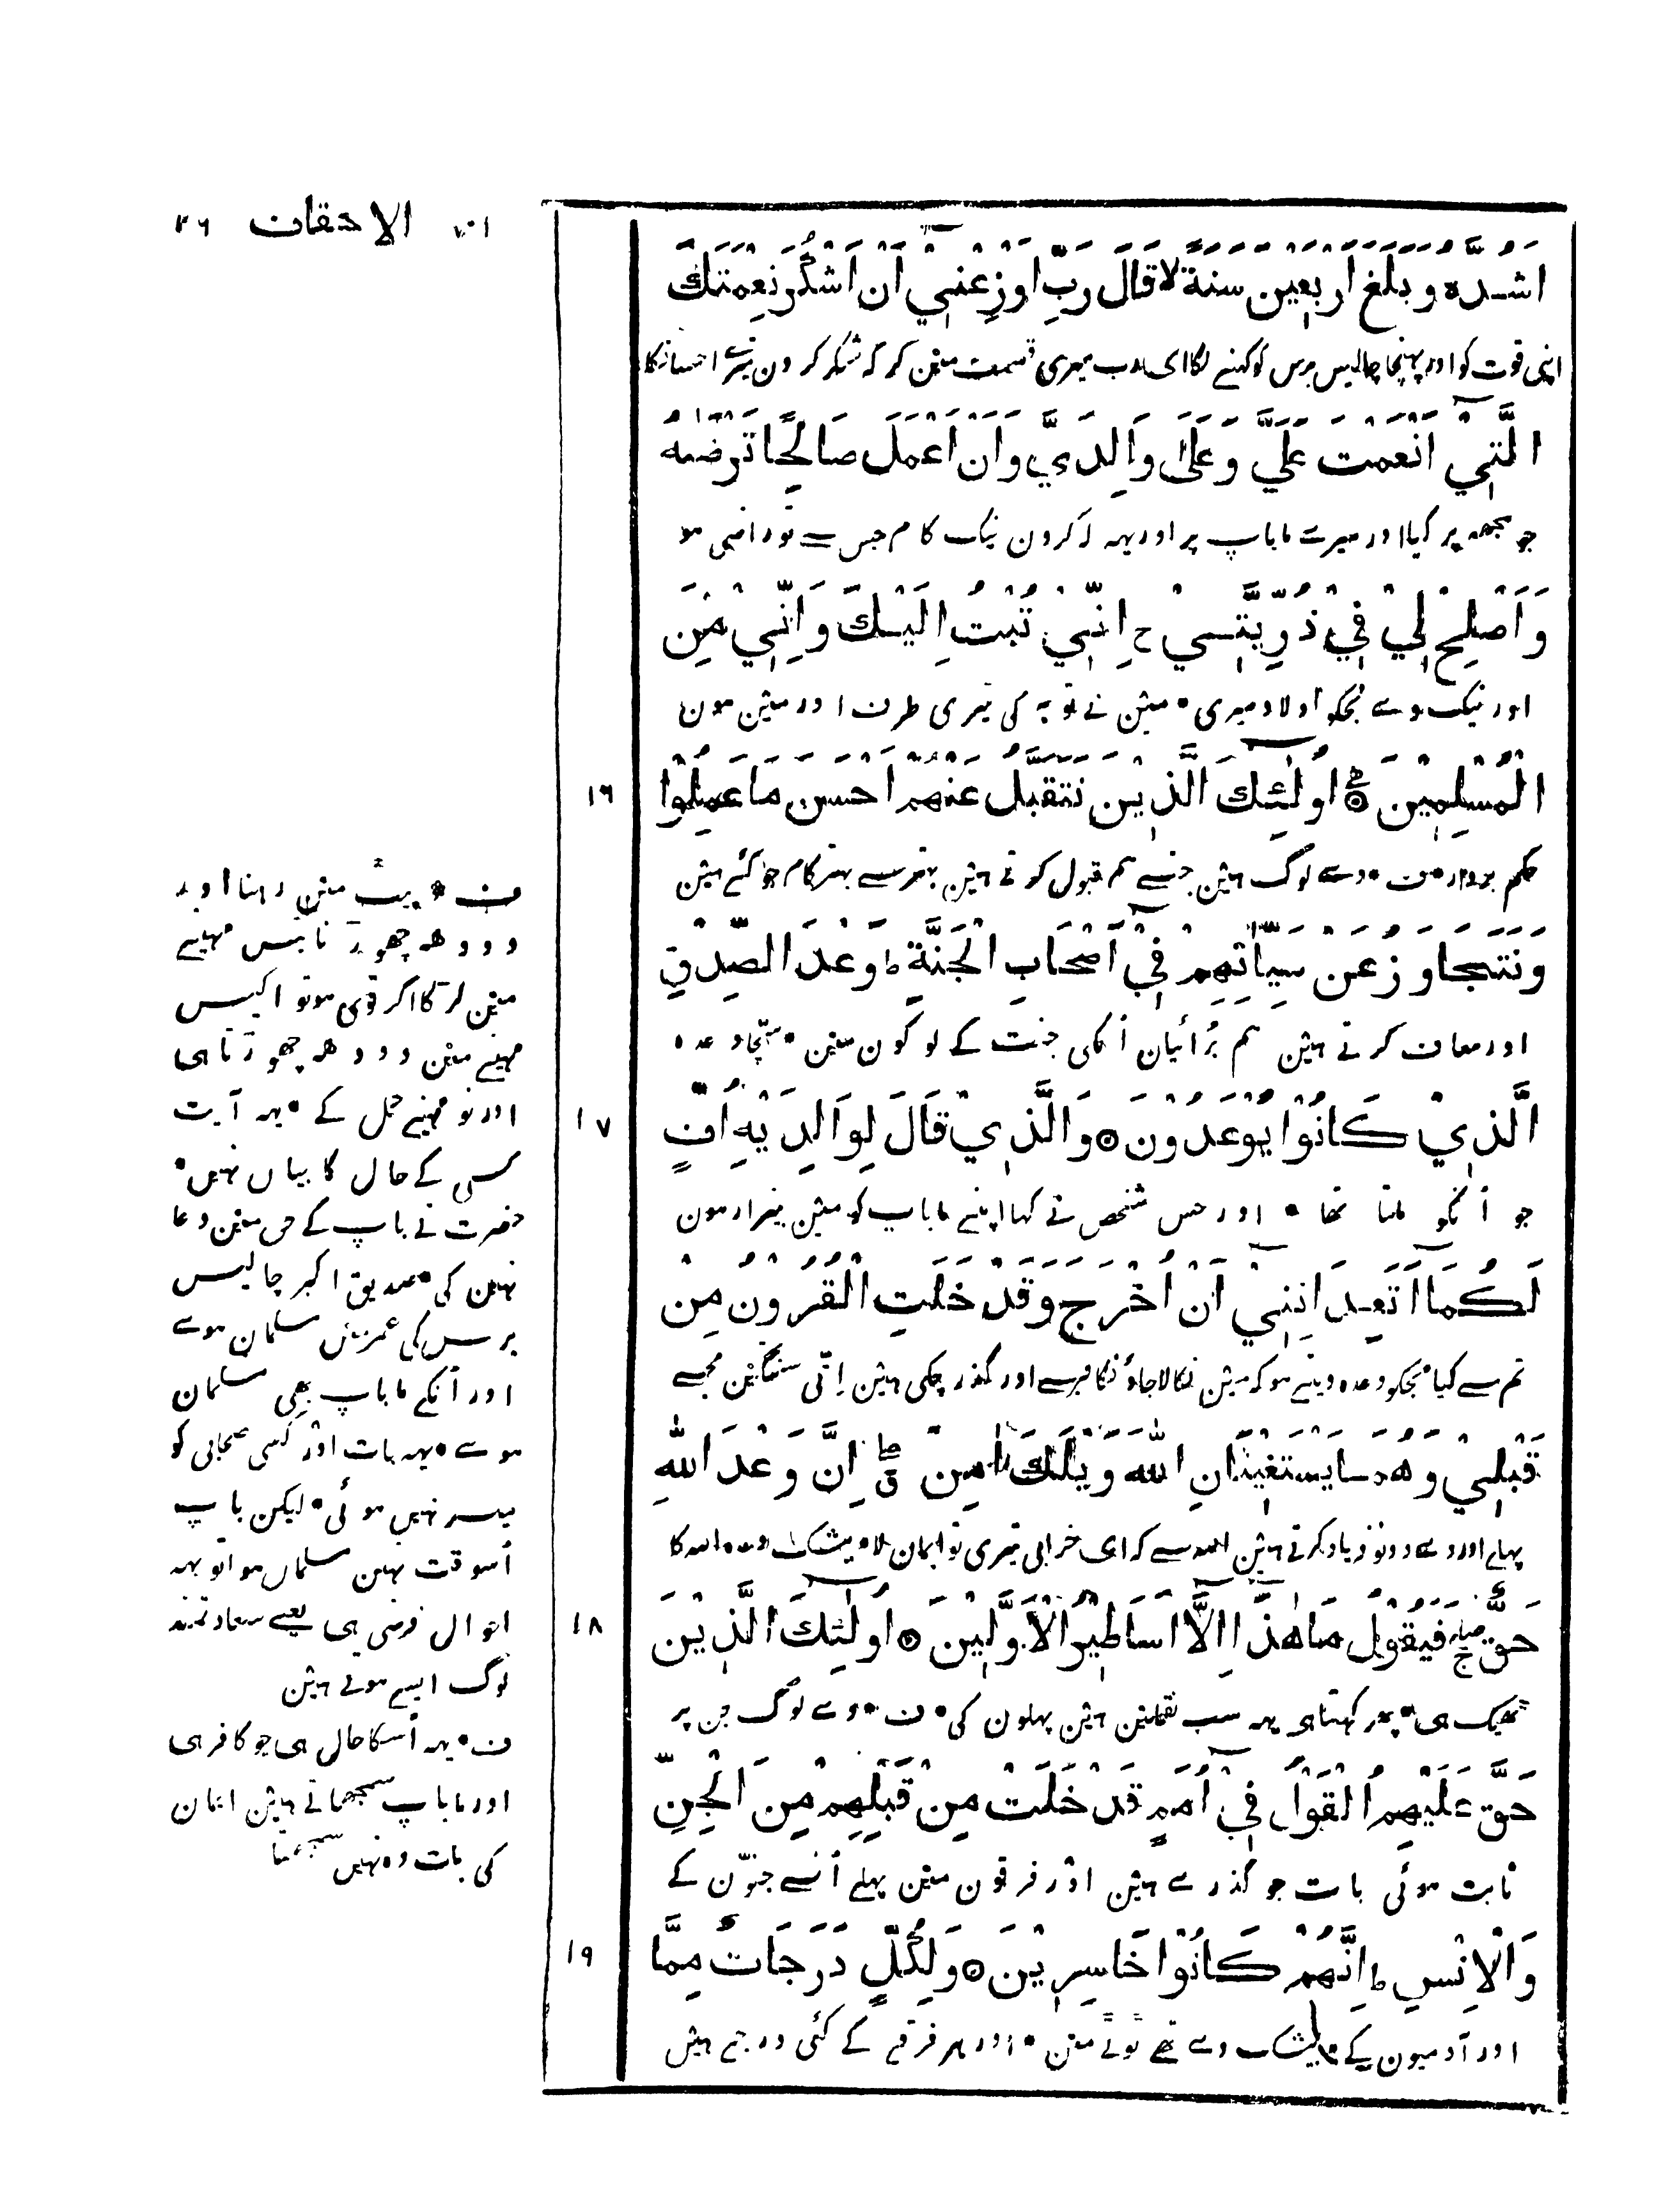 الاحقاف ٤٦
اَشُدَّهٗ وَبَلَغَ اَرْبَعِيْنَ سَنَةً لا قَالَ رَبِّ اَوْزِعْنِيْٓ اَنْ اَشْكُرَ نِعْمَتَكَ
اپنی قوت کو اور پہنچا چالیس برس کو کہنے لگا ای رب میری قسمت مین کر کہ شکر کرون تیرے احسانکا
الَّتِيْٓ اَنْعَمْتَ عَلَيَّ وَعَلٰى وَالِدَيَّ وَاَنْ اَعْمَلَ صَالِحًا تَرْضٰهُ
جو مجھہ پر کیا اور میرے ماباپ پر اور یہہ کہ کرون نیک کام جس سے تو راضی ہو
وَاَصْلِحْ لِيْ فِيْ ذُرِّيَّتِيْ ج اِنِّيْ تُبْتُ اِلَيْكَ وَاِنِّيْ مِنَ
اور نیک دے مجکو اولاد میری • مین نے توبہ کی تیری طرف اور مین ہون
١٦
الْمُسْلِمِيْنَ ۞ اُولٰٓئِكَ الَّذِيْنَ نَتَقَبَّلُ عَنْهُمْ اَحْسَنَ مَا عَمِلُوْا
حکم بردار • ف • وے لوگ ہین جنسے ہم قبول کرتے ہین بہتر سے بہتر کام جو کئے ہین
وَنَتَجَاوَزُ عَنْ سَيِّاٰتِهِمْ فِيْٓ اَصْحَابِ الْجَنَّةِ ط وَعْدَ الصِّدْقِ
اور معاف کرتے ہین ہم بُرائیان اُنکی جنت کے لوگون مین • سچّا وعدہ
١٧
الَّذِيْ كَانُوْا يُوْعَدُوْنَ ۞ وَالَّذِيْ قَالَ لِوَالِدَيْهِ اُفٍّ
جو اُنکو ملتا تھا • اور جس شخص نے کہا اپنے ماباپ کو مین بیزار ہون
لَكُمَآ اَتَعِدَانِنِيْٓ اَنْ اُخْرَجَ وَقَدْ خَلَتِ الْقُرُوْنُ مِنْ
تم سے کیا مجکو وعدہ دیتے ہو کہ مین نکالا جاؤنگا قبر سے اور گذر چکی ہین اِتنی سنگتین مجسے
قَبْلِيْ وَهُمَا يَسْتَغِيْثَانِ اللّٰهَ وَيْلَكَ اٰمِنْ ق اِنَّ وَعْدَ اللّٰهِ
پہلے اور وے دونو فریاد کرتے ہین اللہ سے کہ ای خرابی تیری تو ایمان لا • بیشک وعدہ اللہ کا
١٨
حَقٌّ فَيَقُوْلُ مَا هٰذَآ اِلَّآ اَسَاطِيْرُ الْاَوَّلِيْنَ ۞ اُولٰٓئِكَ الَّذِيْنَ
ٹھیک ہی • پھر کہتا ہی یہہ سب نقلین ہین پہلون کی • ف • وے لوگ جن پر
حَقَّ عَلَيْهِمُ الْقَوْلُ فِيْٓ اُمَمٍ قَدْ خَلَتْ مِنْ قَبْلِهِمْ مِّنَ الْجِنِّ
ثابت ہوئی بات جو گذرے ہین اوْر فرقون مین پہلے اُنسے جنّون کے
١٩
وَالْاِنْسِ ط اِنَّهُمْ كَانُوْا خَاسِرِيْنَ ۞ وَلِكُلٍّ دَرَجَاتٌ مِّمَّا
اور آدمیون کے • بیشک وے تھے ٹوٹے مین • اور ہر فرقے کے کئی درجے ہین
ف • پیٹ مین رہنا اور
دودھہ چھوڑنا تیس مہینے
مین لڑکا اگر قوی ہو تو اکیس
مہینے مین دودھہ چھوڑتا ہی
اور نو مہینے حمل کے • یہہ آیت
کسی کے حال کا بیان نہین •
حضرت نے باپ کے حق مین دعا
نہین کی • صدیق اکبر چالیس
برس کی عمر مین مسلمان ہوے
اور اُنکے ماباپ بھی مسلمان
ہوے • یہہ بات اوْر کسی صحابی کو
میسر نہین ہوئی • لیکن باپ
اُسوقت نہین مسلمان ہوا تو یہہ
احوال فرضی ہی یعنے سعادتمند
لوگ ایسے ہوتے ہین
ف • یہہ اُسکا حال ہی جو کافر ہی
اور ماباپ سمجھاتے ہین ایمان
کی بات وہ نہین سمجھتا